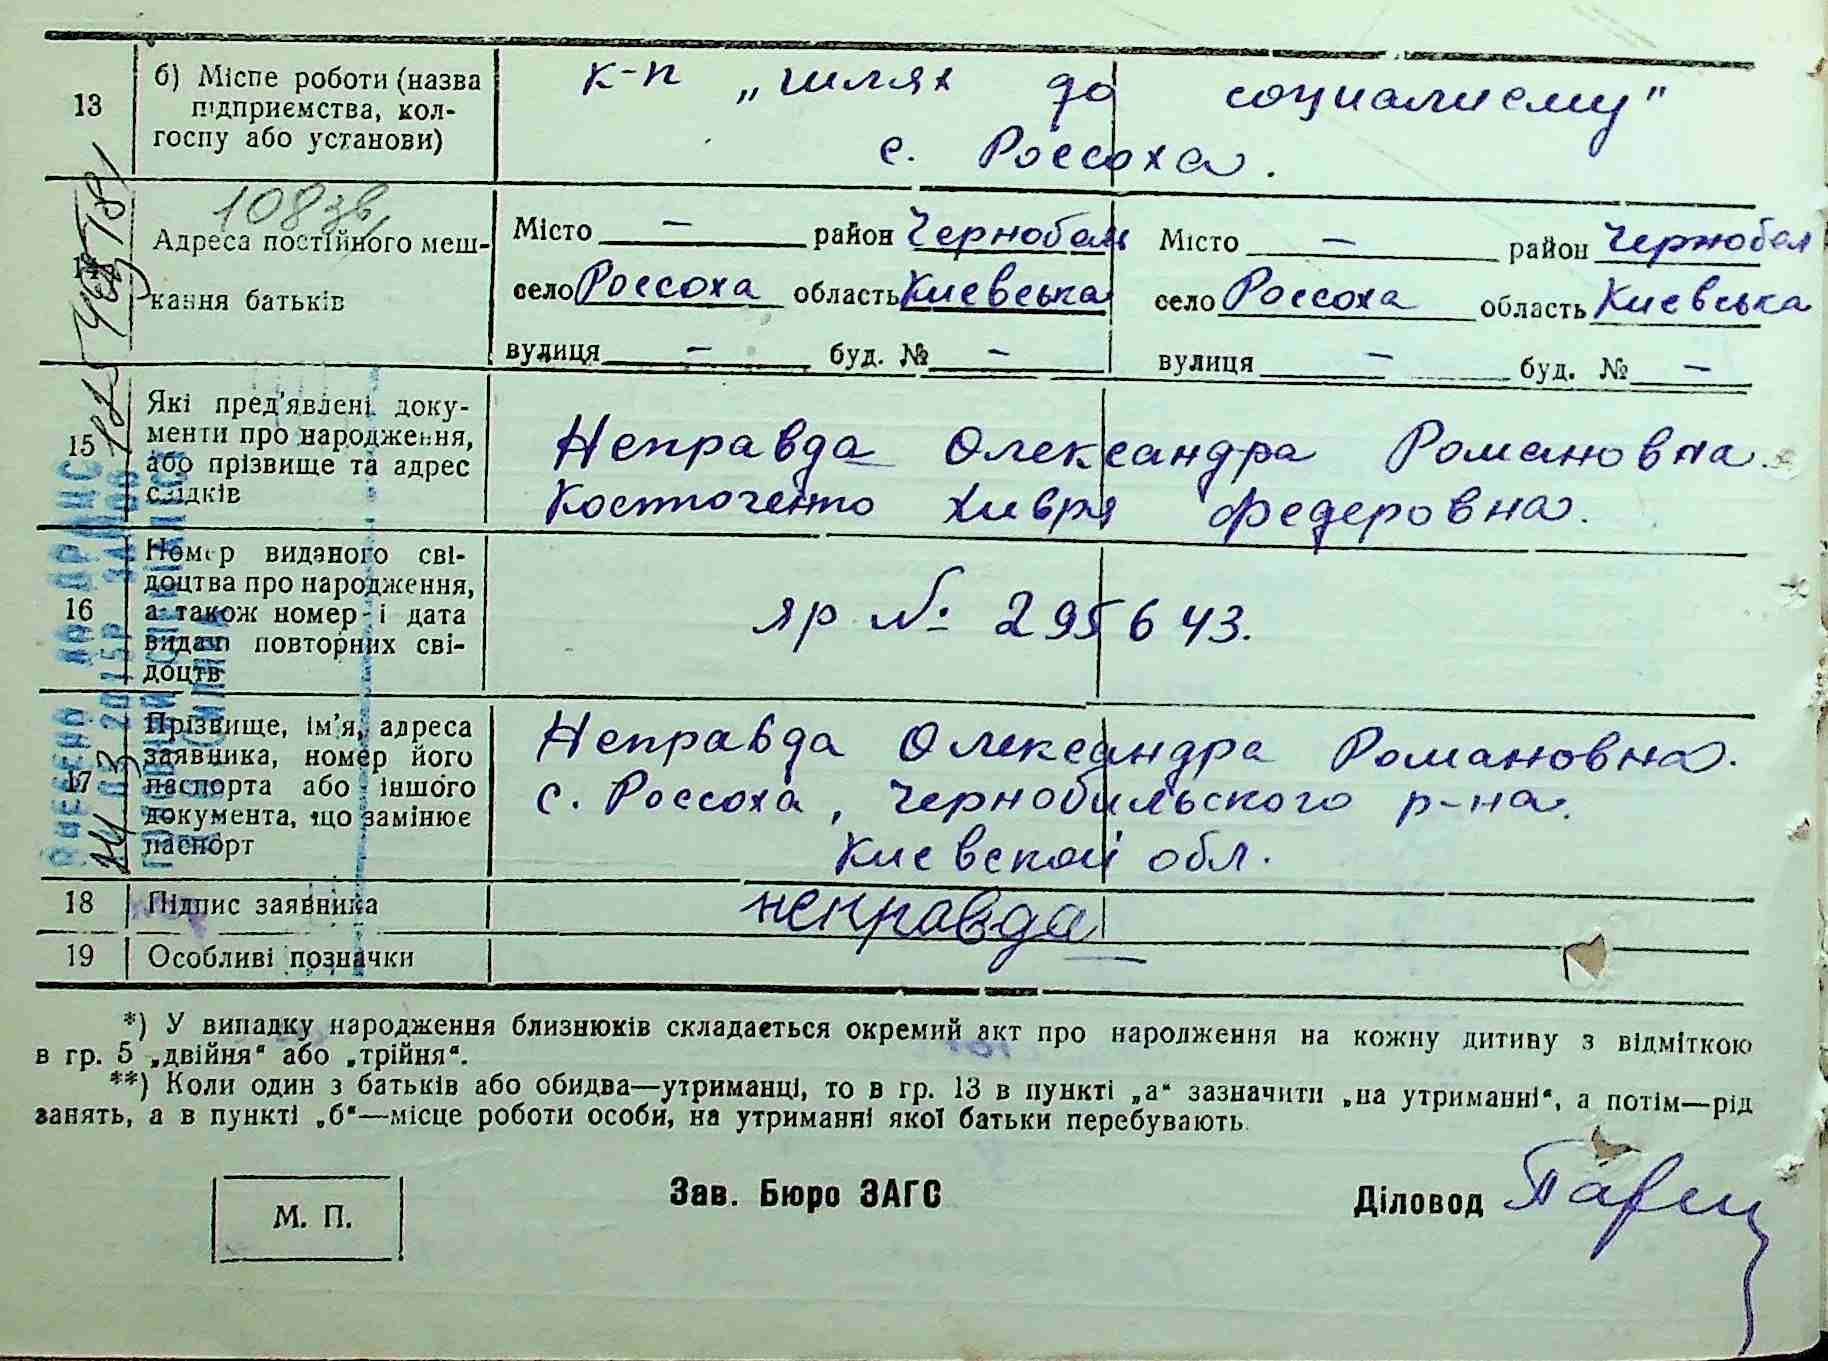 13
б) Місце роботи (назва
підприємства, кол-
госпу або установи)
к-п „шлях до социализму"
с. Россоха.
108 зв,
14
Адреса постійного меш-
кання батьків
Місто — район Чернобыль
село Россоха область Киевська
вулиця — буд. № —
Місто — район Чернобыл
село Россоха область Киевська
вулиця — буд. № —
15
Які пред'явлені доку-
менти про народження,
або прізвище та адрес
свідків
Неправда Олександра Романовна.
Костюченко Хивря Федеровна.
16
Номер виданого сві-
доцтва про народження,
а також номер і дата
видачі повторних сві-
доцтв
яр № 295643.
17
Прізвище, ім'я, адреса
заявника, номер його
паспорта або іншого
документа, що замінює
паспорт
Неправда Олександра Романовна.
с. Россоха, Чернобильского р-на.
Киевской обл.
18
Підпис заявника
неправда
19
Особливі позначки
*) У випадку народження близнюків складається окремий акт про народження на кожну дитину з відміткою
в гр. 5 „двійня" або „трійня".
**) Коли один з батьків або обидва—утриманці, то в гр. 13 в пункті „а" зазначити „на утриманні", а потім—рід
занять, а в пункті „б"—місце роботи особи, на утриманні якої батьки перебувають
М. П.
Зав. Бюро ЗАГС
Діловод